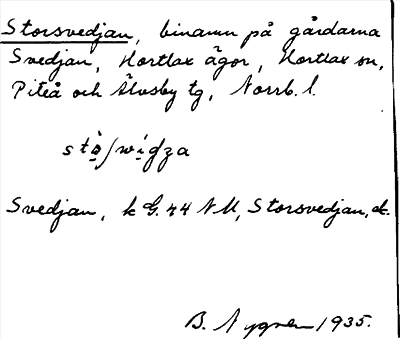 Storsvedjan, binamn på gårdarna
Svedjan, Hortlax ägor, Hortlax sn,
Piteå och Älvsby tg, Norrb. l.
Svedjan, k G. 44 NM, Storsvedjan, ek.
B. Nygren 1935.